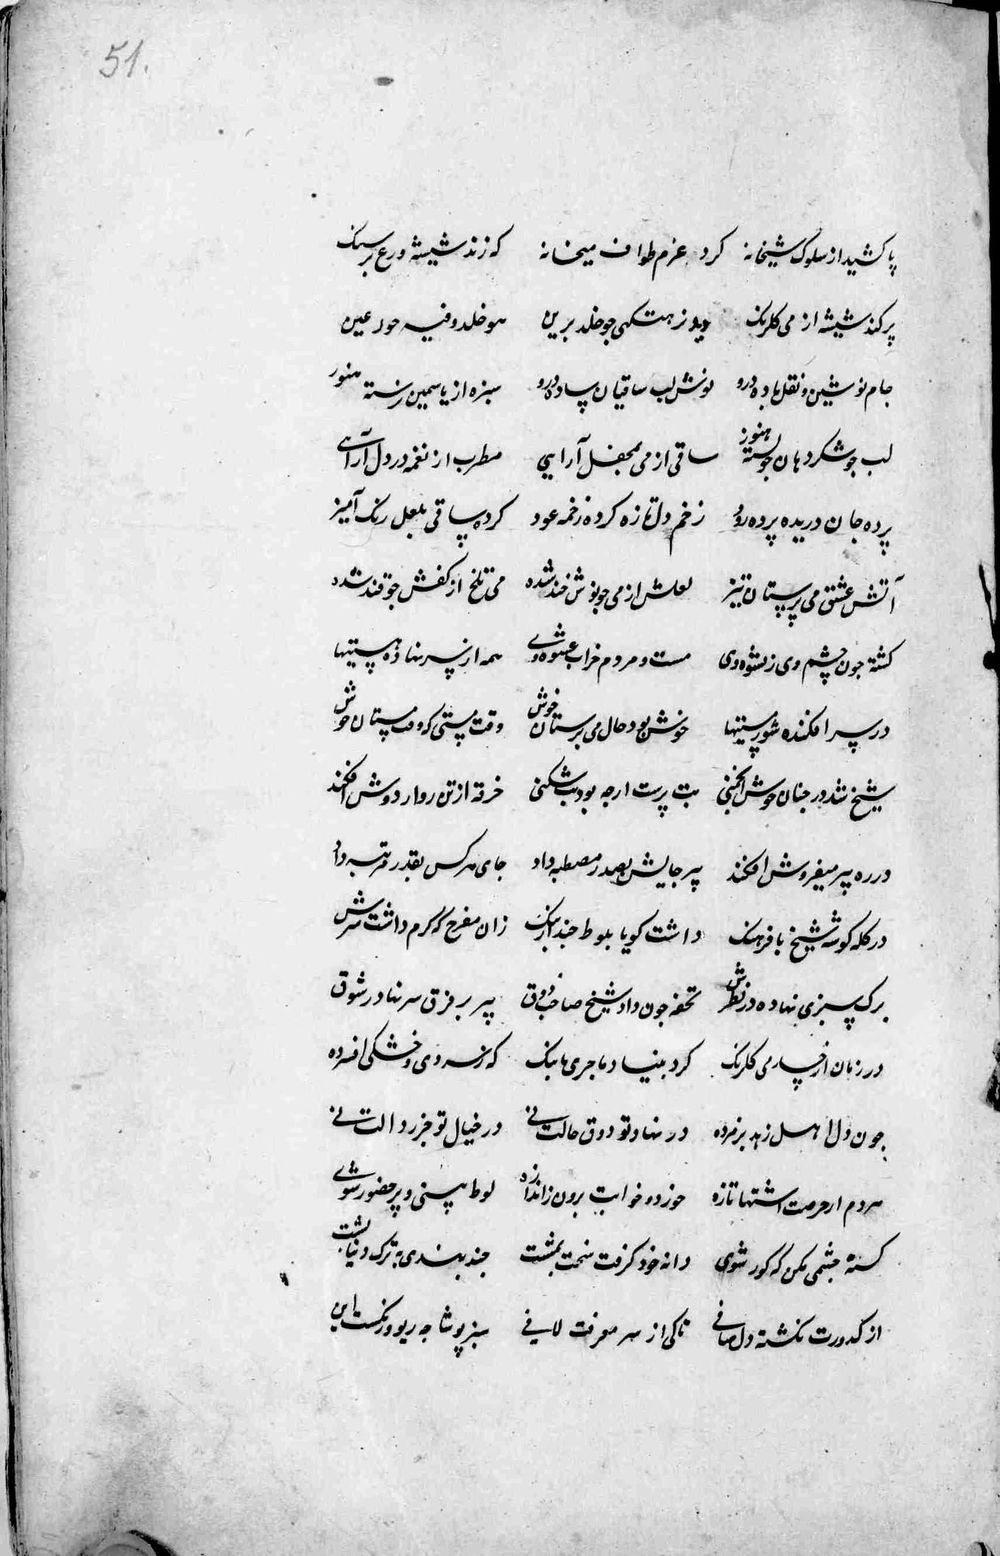 51.
پا کشید از سلوک شیخانه کرد عزم طواف میخانه که زند شیشه ورع بر سنک
پر کند شیشه از می کلرنک دید نزهتکهی جو خلد برین هو خلد و فیه حور عین
جام نوشین و نقل باده درو نوش لب ساقیان ساده درو سبزه از یاسمین نرسته هنوز
لب جو شکر دهان جو بسته هنوز ساقی از می بمحفل آرایی مطرب از نغمه در دل آرایی
پرده جان دریده پرده رود زخم دل تازه کرده زخمه عود کرده ساقی بلعل رنک آمیز
آتش عشق می پرستان تیز لعلش از می جو نوش خند شده می تلخ از کفش جو قند شده
کشته جون چشم وی ز نشوه وی مست و مردم خراب عشوه وی همه از سر نهاده هستیها
در سر افکنده شور مستیها خوش بود حال می پرستان خوش وقت مستی که وقت مستان خوش
شیخ شد در جنان خوش انجمنی بت پرست ارجه بود بت شکنی خرقه از تن روا ز دوش افکند
در ره پیر میفروش افکند پیر جایش بصدر مصطبه داد جای هر کس بقدر مرتبه داد
در کله کوشه شیخ با فرهنک داشت کویا بلوط جند از بنک زان مفرح که کرم داشت سرش
برک سبزی نهاده در نظرش تحفه جون داد شیخ صاحب ذوق پیر بر فرق سر نهاد ز شوق
در زمان از خمار می کلرنک کرد بنیاد ماجری با بنک که ز سردی و خشکی افسرده
جون دل اهل زهد پژمرده در نهاد تو ذوق حالت نی در خیال تو جز ردالت نی
مردم از حرصت اشتها تازه خورد و خوابت برون ز اندازه لوط بینی و پر حضور شوی
کسنه جشمی مکن که کور شوی دانه خود کرفت سخت بمشت جند بندی به ترک دنیا پشت
از کدورت نکشته دل صافی تا کی از سر معرفت لافی سبز پوشا به ریو و رنکست این